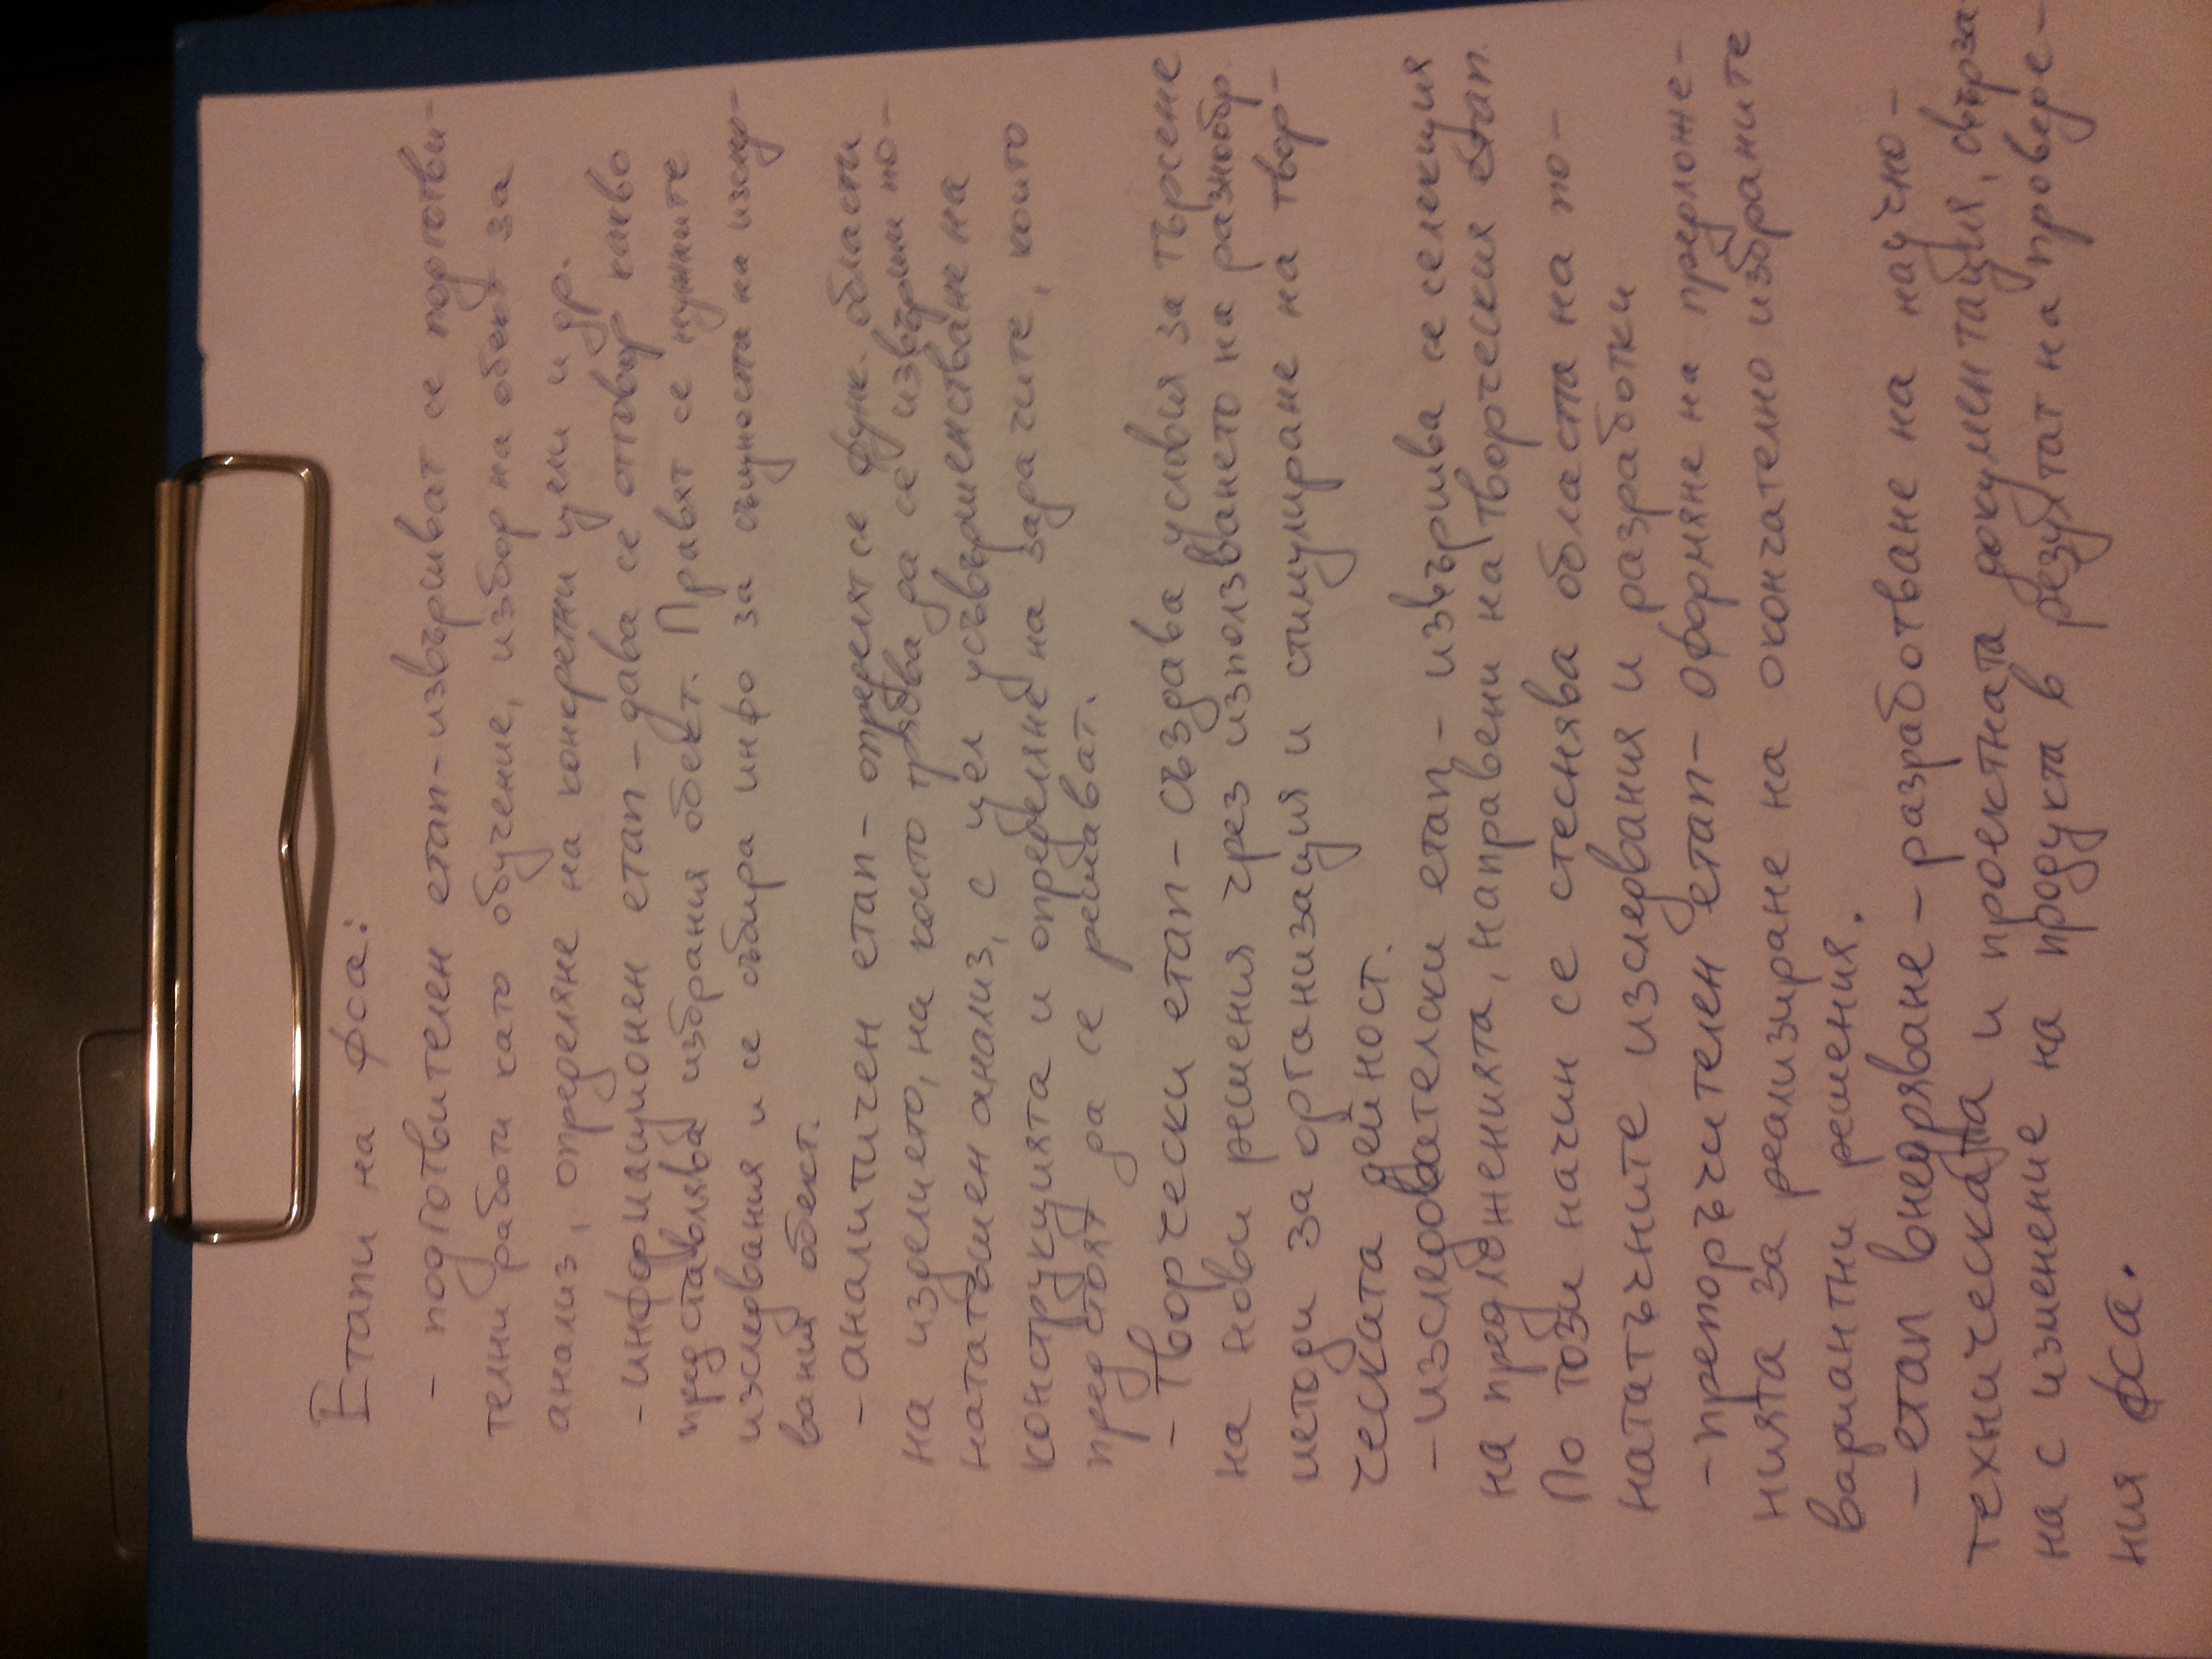 Етапи на фса:
- подготвителен етап - извършват се подготви-
телни работи като обучение, избор на обект за
анализ, определяне на конкретни цели и др.
- информационен етап - дава се отговор какво
представлява избрания обект. Правят се нужните
изследвания и се събира инфо за същността на изслед-
вания обект.
- аналитичен етап - определят се функ. области
на изделието, на които трябва да се извърши по-
натъшен анализ, с цел усъвършенстване на
конструкцията и определяне на задачите, които
предстоят да се решават.
- творчески етап - създава условия за търсене
на нови решения чрез използването на разнообр.
методи за организация и стимулиране на твор-
ческата дейност.
- изследователски етап - извършва се селекция
на предложенията, направени на творческия етап.
По този начин се стеснява областа на по-
натътъчните изследвания и разработки
- препоръчителен етап - оформяне на предложе-
нията за реализиране на окончателно избраните
вариантни решения.
- етап внедряване - разработване на научно-
техническата и проектната документация, свърза
на с изменение на продукта в резултат на проведе-
ния фса.